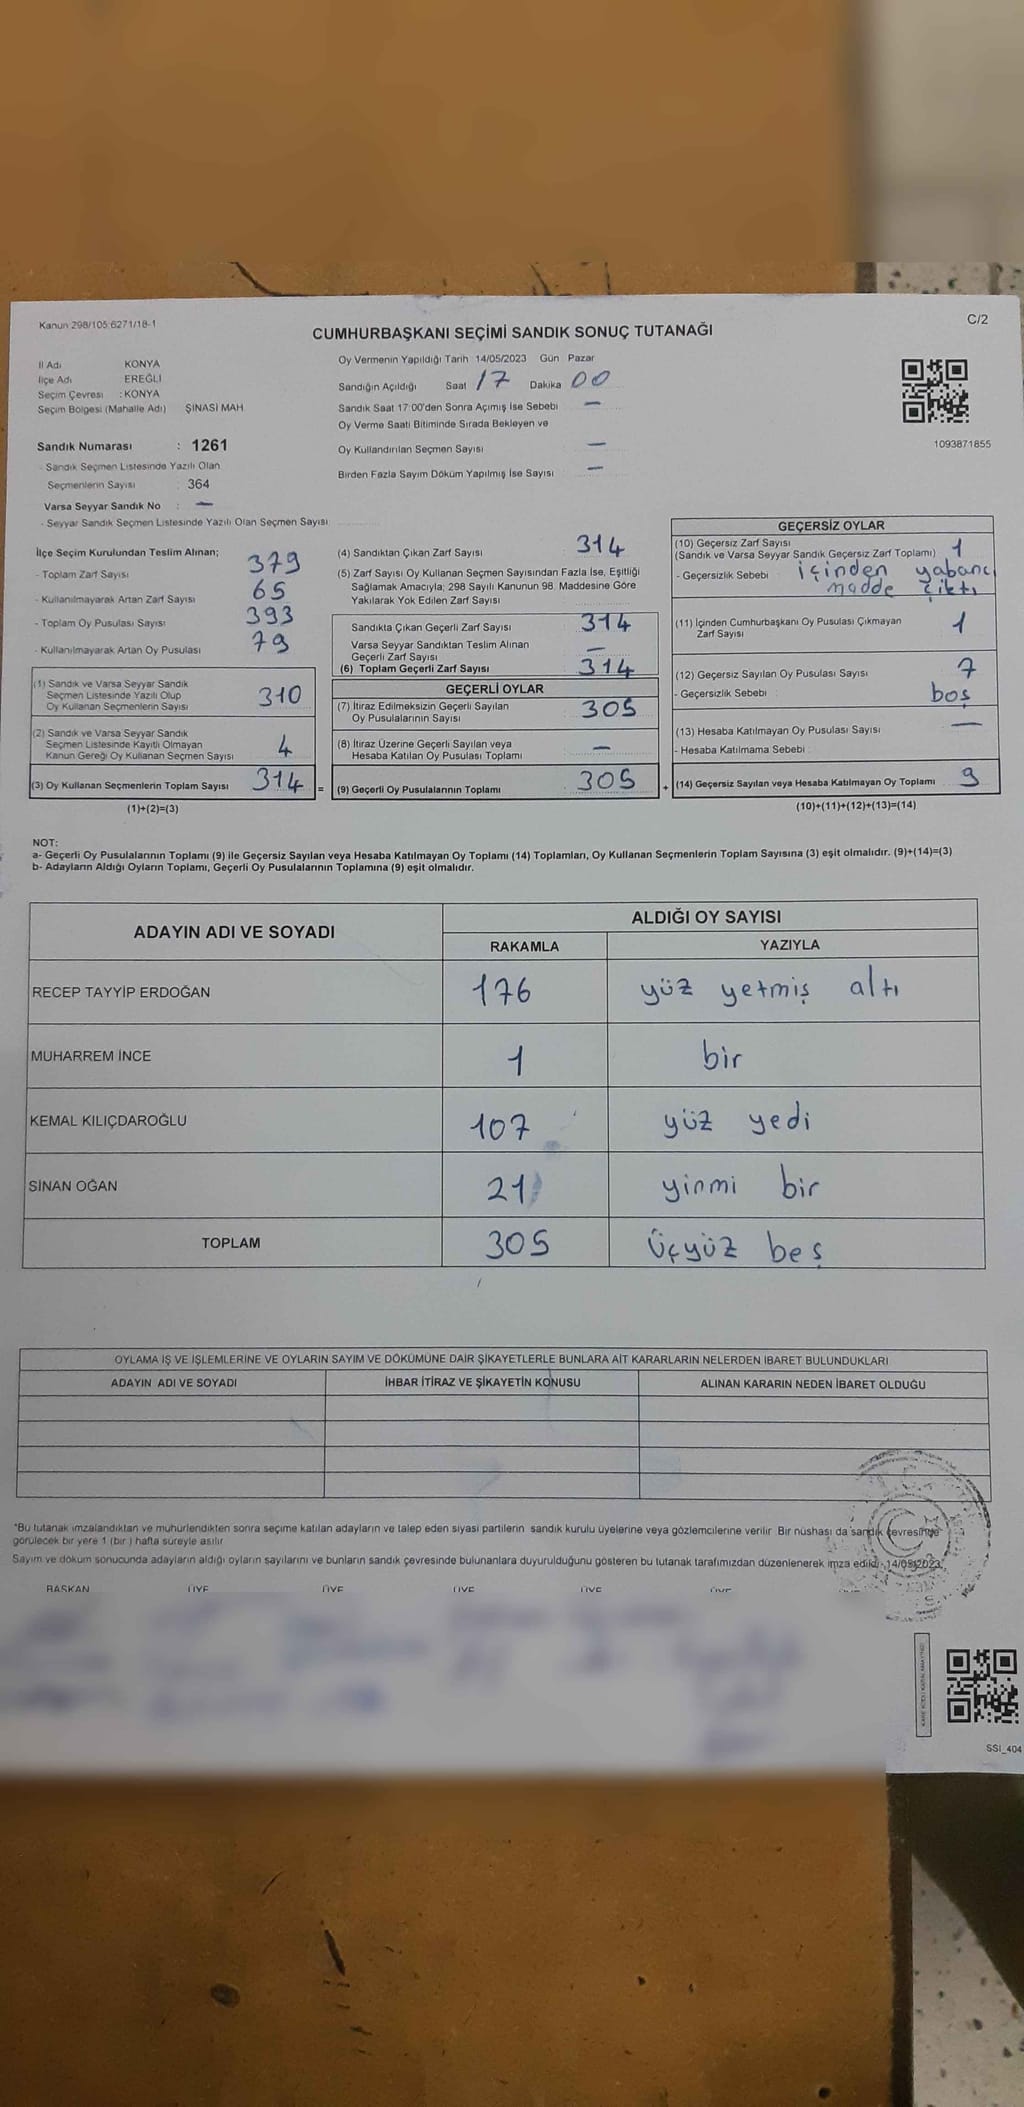 Kanun 298/105;6271/18-1
C/2
CUMHURBAŞKANI SEÇİMİ SANDIK SONUÇ TUTANAĞI
İl Adı KONYA
İlçe Adı EREĞLİ
Seçim Çevresi : KONYA
Seçim Bölgesi (Mahalle Adı) ŞİNASİ MAH
Sandık Numarası : 1261
- Sandık Seçmen Listesinde Yazılı Olan
Seçmenlerin Sayısı : 364
Varsa Seyyar Sandık No : —
- Seyyar Sandık Seçmen Listesinde Yazılı Olan Seçmen Sayısı
Oy Vermenin Yapıldığı Tarih 14/05/2023 Gün Pazar
Sandığın Açıldığı Saat 17 Dakika 00
Sandık Saat 17:00'den Sonra Açımış İse Sebebi —
Oy Verme Saati Bitiminde Sırada Bekleyen ve
Oy Kullandırılan Seçmen Sayısı —
Birden Fazla Sayım Döküm Yapılmış İse Sayısı —
1093871855
İlçe Seçim Kurulundan Teslim Alınan;
- Toplam Zarf Sayısı 379
- Kullanılmayarak Artan Zarf Sayısı 65
- Toplam Oy Pusulası Sayısı 393
- Kullanılmayarak Artan Oy Pusulası 79
(1) Sandık ve Varsa Seyyar Sandık
Seçmen Listesinde Yazılı Olup
Oy Kullanan Seçmenlerin Sayısı 310
(2) Sandık ve Varsa Seyyar Sandık
Seçmen Listesinde Kayıtlı Olmayan
Kanun Gereği Oy Kullanan Seçmen Sayısı 4
(3) Oy Kullanan Seçmenlerin Toplam Sayısı 314 =
(1)+(2)=(3)
(4) Sandıktan Çıkan Zarf Sayısı 314
(5) Zarf Sayısı Oy Kullanan Seçmen Sayısından Fazla İse, Eşitliği
Sağlamak Amacıyla; 298 Sayılı Kanunun 98. Maddesine Göre
Yakılarak Yok Edilen Zarf Sayısı
Sandıkta Çıkan Geçerli Zarf Sayısı 314
Varsa Seyyar Sandıktan Teslim Alınan
Geçerli Zarf Sayısı —
(6) Toplam Geçerli Zarf Sayısı 314
GEÇERLİ OYLAR
(7) İtiraz Edilmeksizin Geçerli Sayılan
Oy Pusulalarının Sayısı 305
(8) İtiraz Üzerine Geçerli Sayılan veya
Hesaba Katılan Oy Pusulası Toplamı —
(9) Geçerli Oy Pusulalarının Toplamı 305 +
GEÇERSİZ OYLAR
(10) Geçersiz Zarf Sayısı
(Sandık ve Varsa Seyyar Sandık Geçersiz Zarf Toplamı) 1
- Geçersizlik Sebebi içinden yabancı
madde çıktı
(11) İçinden Cumhurbaşkanı Oy Pusulası Çıkmayan
Zarf Sayısı 1
(12) Geçersiz Sayılan Oy Pusulası Sayısı 7
- Geçersizlik Sebebi boş
(13) Hesaba Katılmayan Oy Pusulası Sayısı —
- Hesaba Katılmama Sebebi
(14) Geçersiz Sayılan veya Hesaba Katılmayan Oy Toplamı 9
(10)+(11)+(12)+(13)=(14)
NOT:
a- Geçerli Oy Pusulalarının Toplamı (9) ile Geçersiz Sayılan veya Hesaba Katılmayan Oy Toplamı (14) Toplamları, Oy Kullanan Seçmenlerin Toplam Sayısına (3) eşit olmalıdır. (9)+(14)=(3)
b- Adayların Aldığı Oyların Toplamı, Geçerli Oy Pusulalarının Toplamına (9) eşit olmalıdır.
ADAYIN ADI VE SOYADI
ALDIĞI OY SAYISI
RAKAMLA YAZIYLA
RECEP TAYYİP ERDOĞAN 176 yüz yetmiş altı
MUHARREM İNCE 1 bir
KEMAL KILIÇDAROĞLU 107 yüz yedi
SİNAN OĞAN 21 yirmi bir
TOPLAM 305 Üçyüz beş
OYLAMA İŞ VE İŞLEMLERİNE VE OYLARIN SAYIM VE DÖKÜMÜNE DAİR ŞİKAYETLERLE BUNLARA AİT KARARLARIN NELERDEN İBARET BULUNDUKLARI
ADAYIN ADI VE SOYADI İHBAR İTİRAZ VE ŞİKAYETİN KONUSU ALINAN KARARIN NEDEN İBARET OLDUĞU
*Bu tutanak imzalandıktan ve mühürlendikten sonra seçime katılan adayların ve talep eden siyasi partilerin sandık kurulu üyelerine veya gözlemcilerine verilir. Bir nüshası da sandık çevresinde
görülecek bir yere 1 (bir) hafta süreyle asılır
Sayım ve döküm sonucunda adayların aldığı oyların sayılarını ve bunların sandık çevresinde bulunanlara duyurulduğunu gösteren bu tutanak tarafımızdan düzenlenerek imza edildi. 14/05/2023
BAŞKAN ÜYE ÜYE ÜYE ÜYE ÜYE
SSI_404